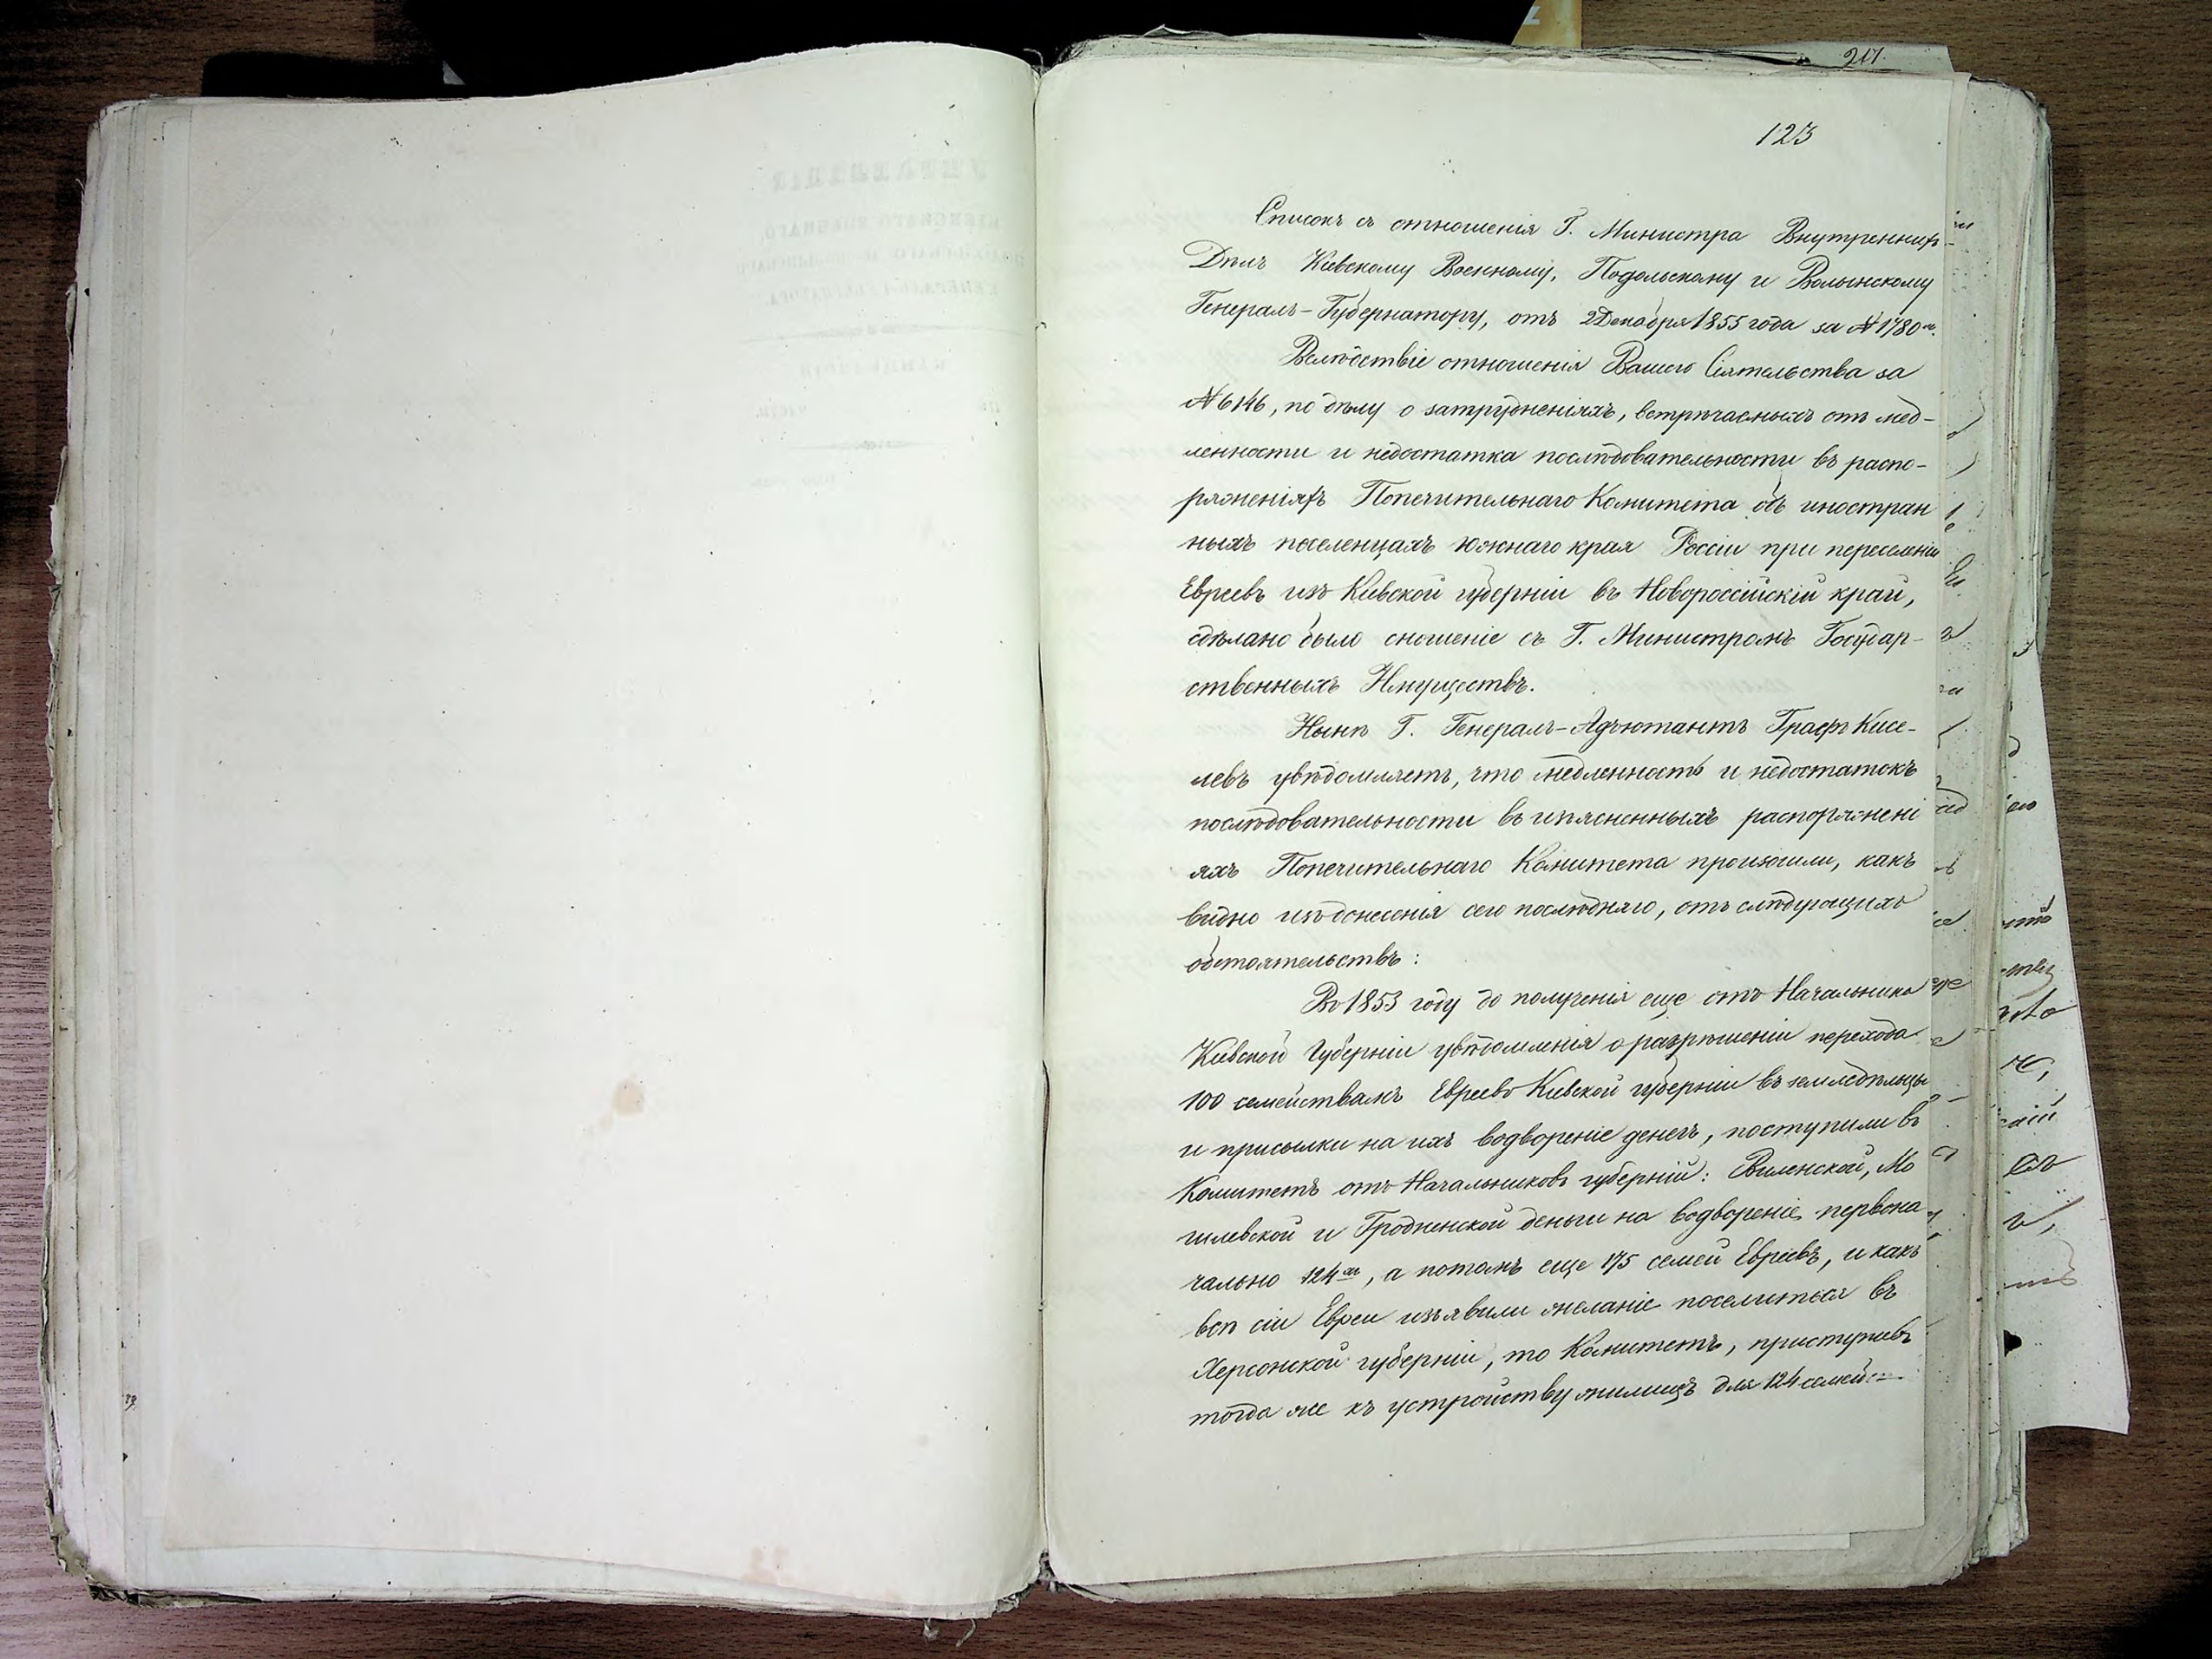 217.
123
Списокъ съ отношенія Г. Министра Внутреннихъ
Дѣлъ Кіевскому Военному, Подольскому и Волынскому
Генералъ-Губернатору, отъ 2 Декабря 1855 года за № 1780м.
Вслѣдствіе отношенія Вашего Сіятельства за
№ 6146, по дѣлу о затрудненіяхъ, встрѣчаемыхъ отъ мед-
ленности и недостатка послѣдовательности въ распо-
ряженіяхъ Попечительнаго Комитета объ иностран
ныхъ поселенцахъ южнаго края Россіи при переселеніи
Евреевъ изъ Кіевской губерніи въ Новороссійскій край,
сдѣлано было сношеніе съ Г. Министромъ Государ-
ственныхъ Имуществъ.
Нынѣ Г. Генералъ-Адъютантъ Графъ Кисе-
левъ увѣдомляетъ, что медленность и недостатокъ
послѣдовательности въ изъясненныхъ распоряжені
яхъ Попечительнаго Комитета произошли, какъ
видно изъ донесенія сего послѣдняго, отъ слѣдующихъ
обстоятельствъ:
Въ 1853 году до полученія еще отъ Начальника
Кіевской Губерніи увѣдомленія о разрѣшеніи перехода
100 семействамъ Евреевъ Кіевской губерніи въ земледѣльцы
и присылки на ихъ водвореніе денегъ, поступили въ
Комитетъ отъ Начальниковъ губерній: Виленской, Мо
гилевской и Гродненской деньги на водвореніе первона
чально 124хъ, а потомъ еще 175 семей Евреевъ, и какъ
всѣ сіи Евреи изъявили желаніе поселиться въ
Херсонской губерніи, то Комитетъ, приступивъ
тогда же къ устройству жилищъ для 124 семей